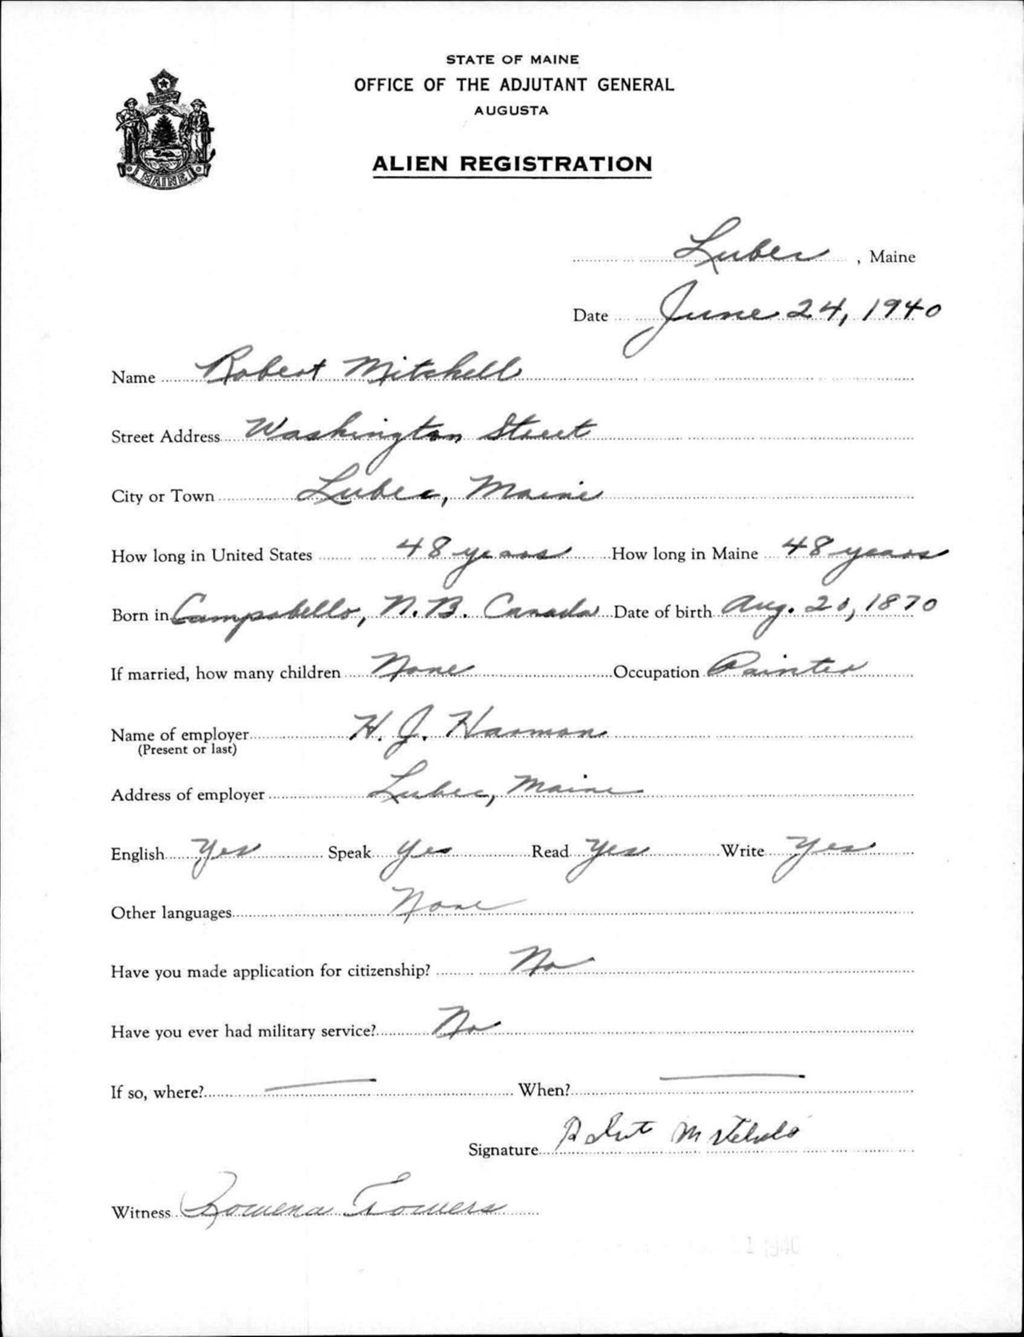 STATE OF MAINE
OFFICE OF THE ADJUTANT GENERAL
AUGUSTA
MAINE
ALIEN REGISTRATION
Lubec, Maine
Date June 24, 1940
Name Robert Mitchell
Street Address Washington Street
City or Town Lubec, Maine
How long in United States 48 years How long in Maine 48 years
Born in Campobello, N.B. Canada Date of birth Aug. 20, 1870
If married, how many children None Occupation Painter
Name of employer H. J. Harmon
(Present or last)
Address of employer Lubec, Maine
English Yes Speak Yes Read Yes Write Yes
Other languages None
Have you made application for citizenship? No
Have you ever had military service? No
If so, where? — When? —
Signature Robert Mitchell
Witness Rowena Towers
1 1940